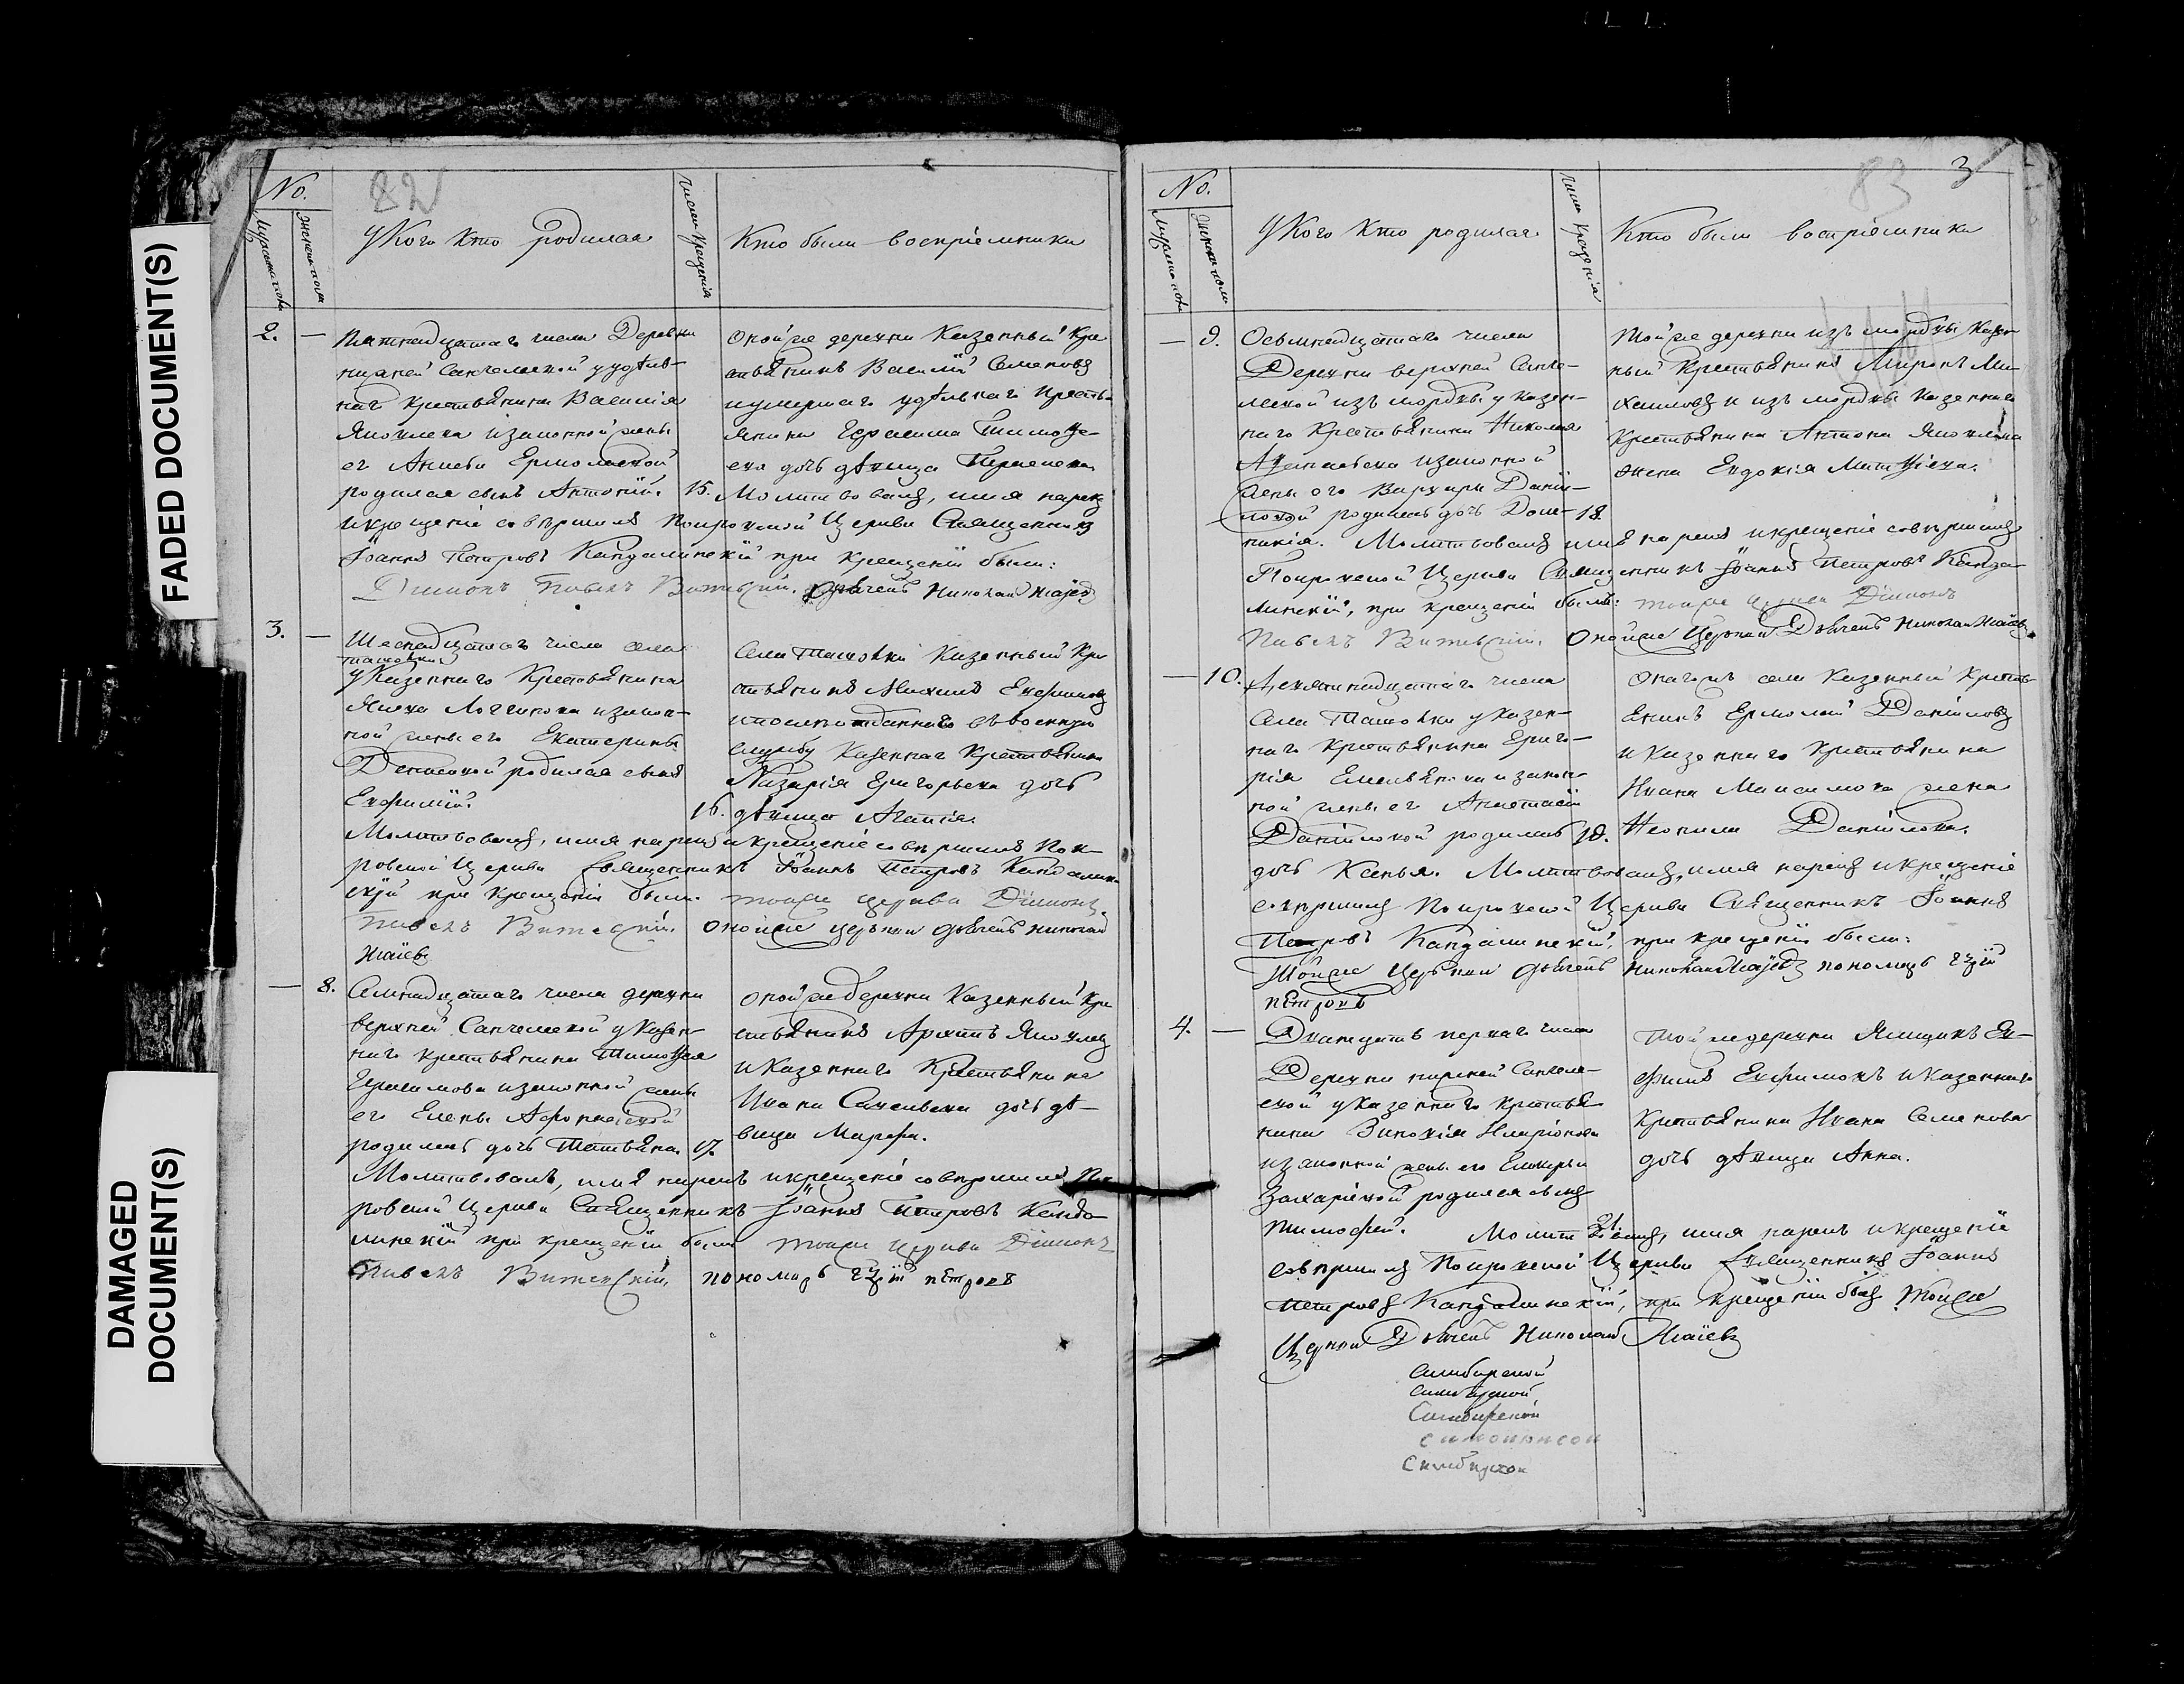 FADED DOCUMENT(S)
DAMAGED
DOCUMENT(S)
82
No.
Мужеска пола
Женска пола
У Кого Кто родился
Число крещенія
Кто были восприемники
2. —
Пятнадцатаго числа Деревни
нижней Санчелеской у удѣль-
наго крестьянина Василія
Яковлева изаконной жены
его Анисьи Ермолаевой
родился сынъ Антоній. 15.
оной же деревни Казенный Кре
стьянинъ Василій Семеновъ
иумершаго удѣльнаго кресть
янина Герасима Тимофе
ева дочь дѣвица
Молитвовалъ, имя нарекъ
икрещеніе совершилъ Покровской Церкви Священникъ
Іоаннъ Петровъ Кандалинскій при крещеніи были:
Діаконъ Павелъ Дьячекъ Николай
3. —
Шеснадцатаго числа села
Ташовки
у Казеннаго Крестьянина
Якова Логинова изакон-
ной жены его Екатерины
Денисовой родился сынъ
Евфимій. 16.
Села Ташовки Казенный Кре
стьянинъ Михаилъ Евфимовъ
отданнаго въ военную
службу Казеннаго Крестьянина
Назарія Григорьева дочь
дѣвица Агапія.
Молитвовалъ, имя нарекъ икрещеніе совершилъ Пок
ровской Церкви Священникъ Іоаннъ Петровъ Кандалин
скій при крещеніи были: тойже церкви Діаконъ
Павелъ онойже церькви дьячекъ николай
— 8.
Семнадцатаго числа деревни
верхней Санчелеской у Казен
наго крестьянина Тимофея
Герасимова изаконной жены
его Елены Афонасьевой
родилась дочь Татьяна. 17.
оной же деревни Казенный Кре
стьянинъ Архипъ Яковлевъ
и Казеннаго Крестьянина
Ивана Савельева дочь дѣ-
вица Марфа.
Молитвовалъ, имя нарекъ икрещеніе совершилъ Пок
ровской Церкви Священникъ Іоаннъ Петровъ Канда
линскій при крещеніи были тойже Церкви Діаконъ
Павелъ пономарь петровъ
83 3
No.
Мужеска пола
Женска пола
У Кого Кто родился
Число крещенія
Кто были восприемники
— 9.
Осьмнадцатаго числа
Деревни верхней Санче-
леской изъ мордвы у казен-
наго Крестьянина Николая
изаконной
жены его Варвары Данiи-
ловой родилась дочь Дом- 18.
Той же деревни изъ мордвы Казен
ный Крестьянинъ Миронъ Ми-
хаиловъ и изъ мордвы Казеннаго
Крестьянина Антона Яковлева
жена Евдокія Матфіева.
никія. Молитвовалъ имя нарекъ икрещеніе совершилъ
Покровской Церкви Священникъ Іоаннъ Петровъ Канда
линскій, при крещеніи были: тойже церкви Діаконъ
Павелъ онойже Церькви Дьячекъ Николай
— 10.
Девятнадцатаго числа
Села Ташовки у Казен-
наго Крестьянина Григо-
рія Емельянова изакон-
ной жены его Анастасіи
Даніиловой родилась 19.
Онагожъ села Казенный Кресть
янинъ Ермолай Даніиловъ
и Казеннаго Крестьянина
Ивана Максимова жена
Неонила Даніилова.
дочь Ксенья. Молитвовалъ, имя нарекъ икрещеніе
совершилъ Покровской Церкви Священникъ Іоаннъ
Петровъ Кандалинскій, при крещеніи были:
Тойже Церькви дьячекъ николай пономарь
петровъ
4. —
Дватцать перваго числа
Деревни нижней Санчеле-
ской у Казеннаго крестья
нина Зиновія Иларіонова
изаконной жены его Гликеріи
Захаріевой родился сынъ
Тимофей. 21.
Той же деревни Ямщикъ Ев-
филъ Евфимовъ и Казеннаго
Крестьянина Ивана Семенова
дочь дѣвица Анна.
Молитвовалъ, имя нарекъ икрещеніе
совершилъ Покровской Церкви Священникъ Іоаннъ
Петровъ Кандалинскій, при крещеніи былъ Тойже
Церкви Дьячекъ Николай
Симбирской
Симбирской
Симбирской